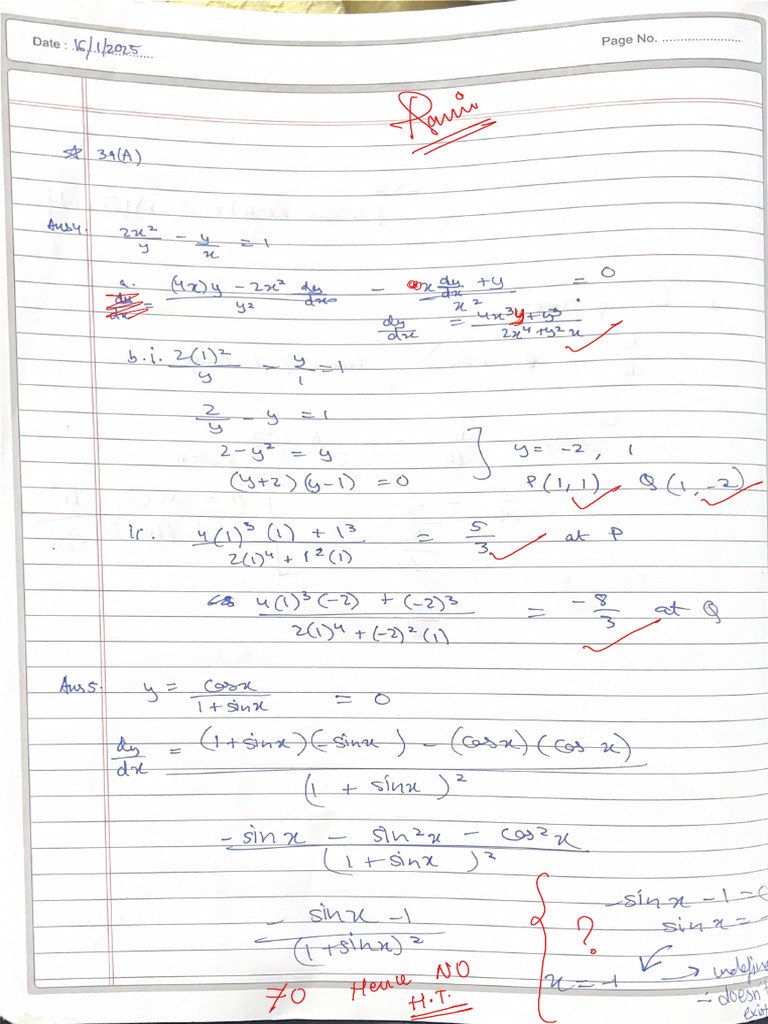 Date : 16/1/2025 Page No. ........................
☆ 39(A)
Ans4. 2x²/y - y/x = 1
a. dy/dx = ((4x)y - 2x² dy/dx)/y² - (x dy/dx + y)/x² = 0
dy/dx = (4x³y + y³)/(2x⁴ + y²x)
b. i. 2(1)²/y - y/1 = 1
2/y - y = 1
2 - y² = y } y = -2, 1
(y+2)(y-1) = 0 P(1, 1) Q(1, -2)
ii. (4(1)³(1) + 1³)/(2(1)⁴ + 1²(1)) = 5/3 at P
(4(1)³(-2) + (-2)³)/(2(1)⁴ + (-2)²(1)) = -8/3 at Q
Ans5. y = cosx/(1+sinx) = 0
dy/dx = ((1+sinx)(-sinx) - (cosx)(cos x))/(1 + sinx)²
(-sinx - sin²x - cos²x)/(1+sinx)²
(-sinx - 1)/(1+sinx)²
-sinx - 1 =
sinx = -
?
x = -1 →
doesn't
exist
≠0 Hence NO
H.T.